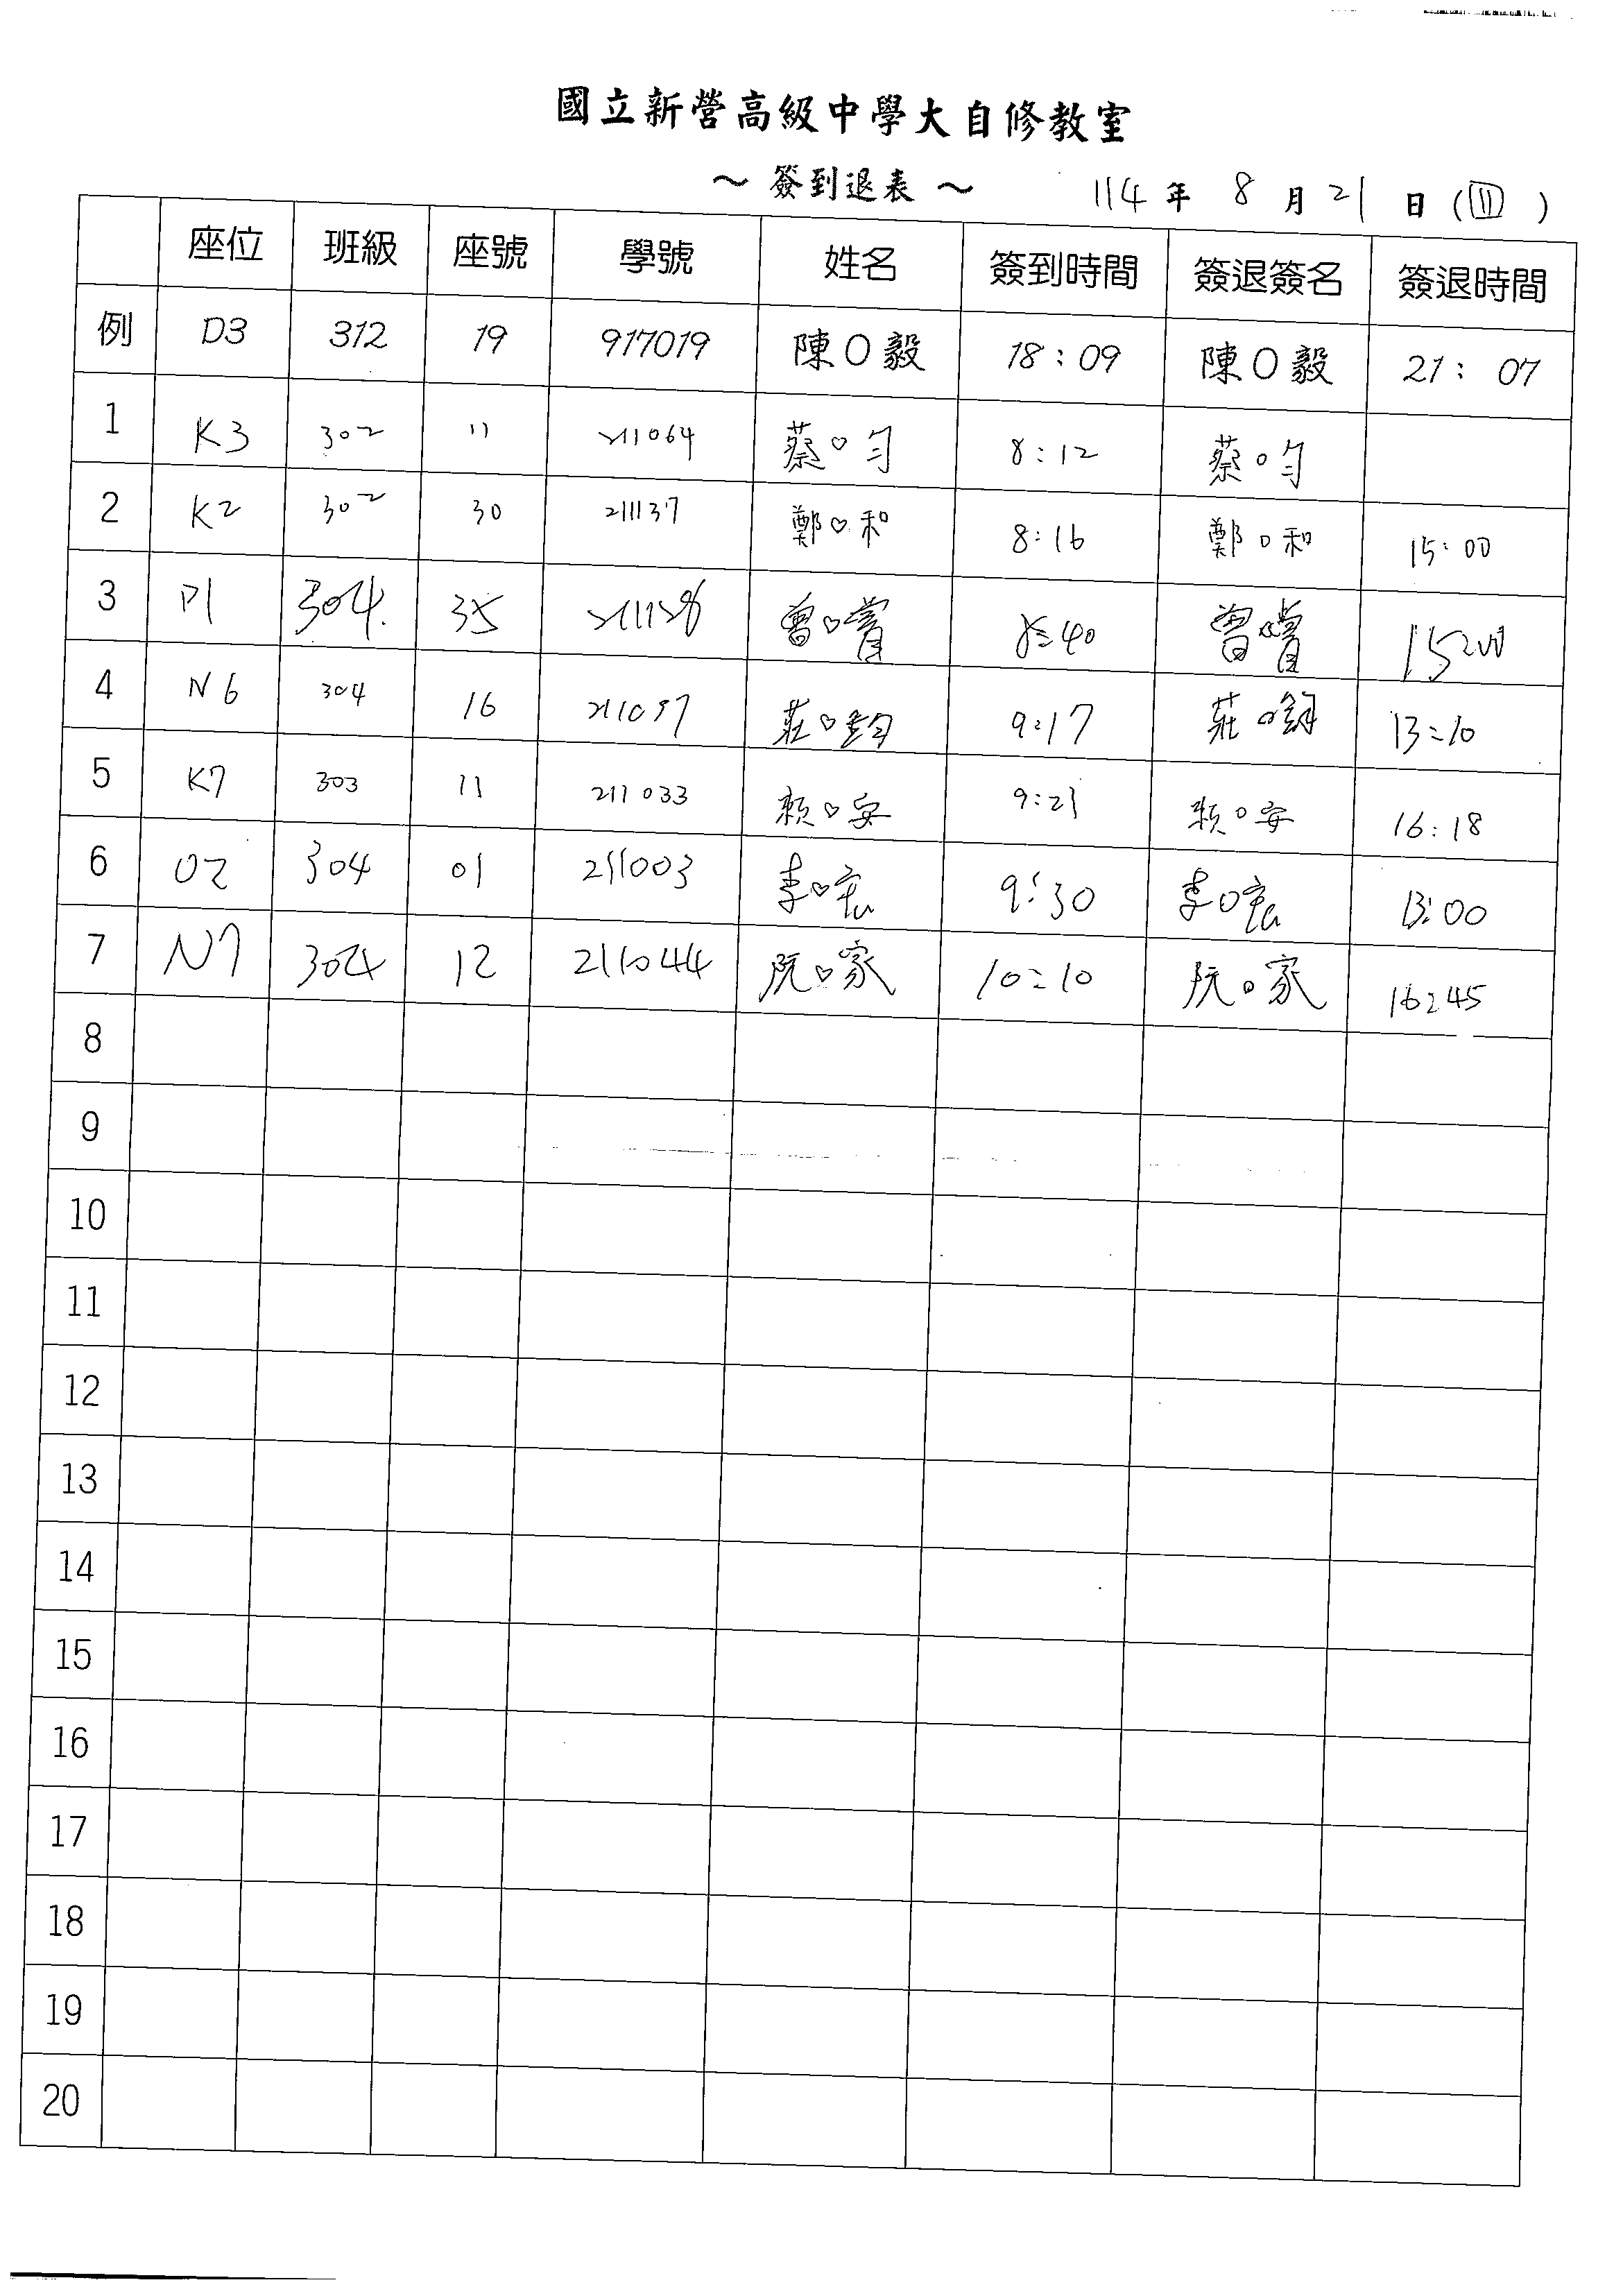 國立新營高級中學大自修教室
～ 簽到退表 ～ 114 年 8 月 21 日 (四)
座位 班級 座號 學號 姓名 簽到時間 簽退簽名 簽退時間
例 D3 312 19 917019 陳O毅 18:09 陳O毅 21:07
1 K3 302 11 211064 蔡O勻 8:12 蔡O勻
2 K2 302 30 211137 鄭O和 8:16 鄭O和 15:00
3 P1 304 35 211128 曾O 8:40 曾 15:00
4 N6 304 16 莊O鈞 9:17 莊O鈞 13:10
5 K7 303 11 211033 賴O安 9:21 賴O安 16:18
6 O2 304 01 211003 李O宏 9:30 李O宏 13:00
7 N7 304 12 211044 阮O家 10:10 阮O家 16:45
8
9
10
11
12
13
14
15
16
17
18
19
20